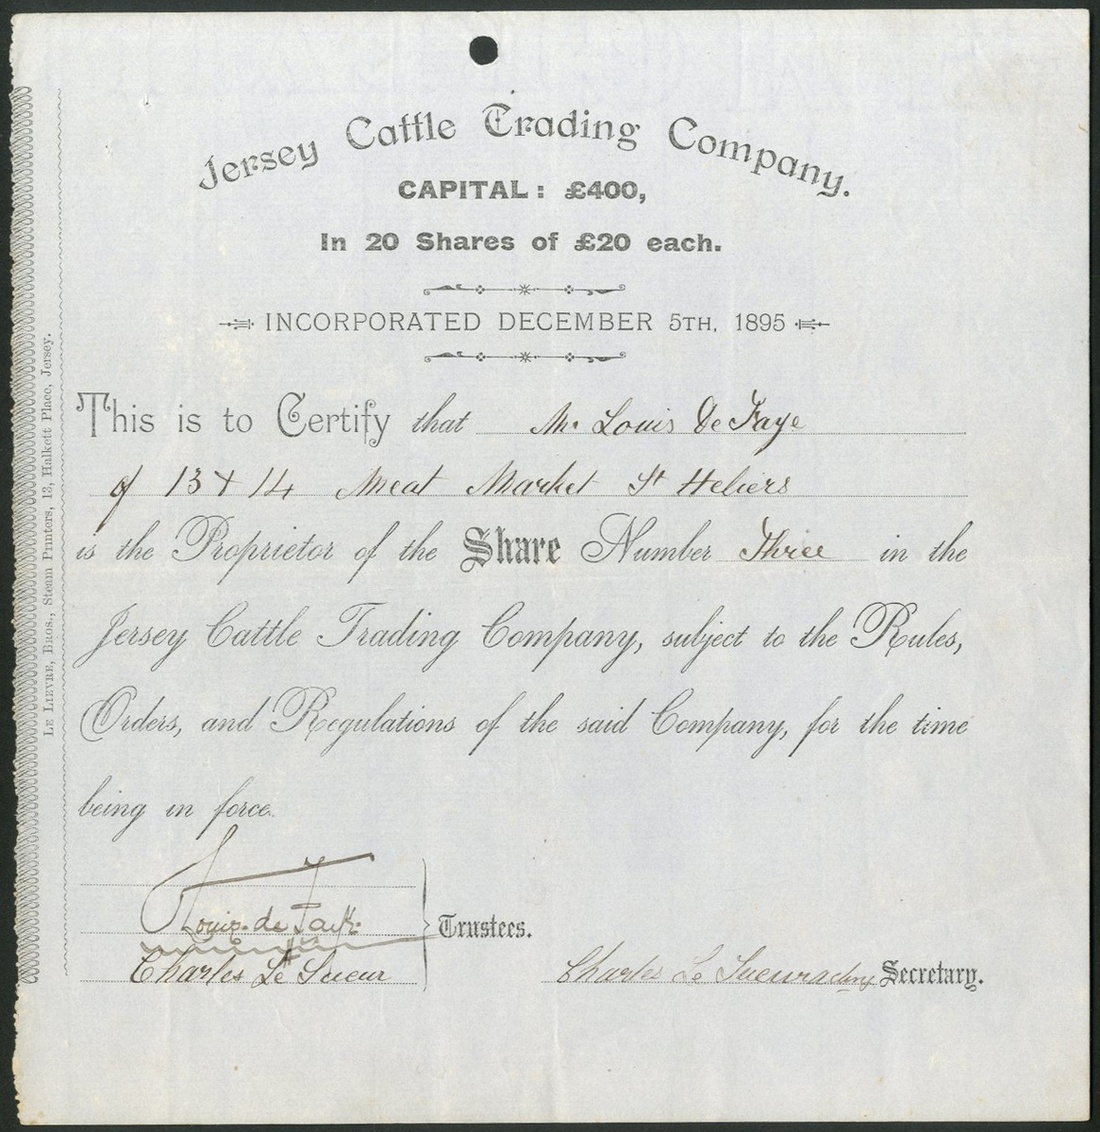 Jersey Cattle Trading Company.
CAPITAL: £400,
In 20 Shares of £20 each.
INCORPORATED DECEMBER 5TH, 1895
This is to Certify that Mr Louis de Faye
of 13 & 14 Meat Market St Heliers
is the Proprietor of the Share Number Three in the
Jersey Cattle Trading Company, subject to the Rules,
Orders, and Regulations of the said Company, for the time
being in force.
Louis de Faye
Trustees.
Charles Le Sueur
Charles Le Sueur Secretary.
LE LIEVRE, BROS., Steam Printers, 13, Halkett Place, Jersey.